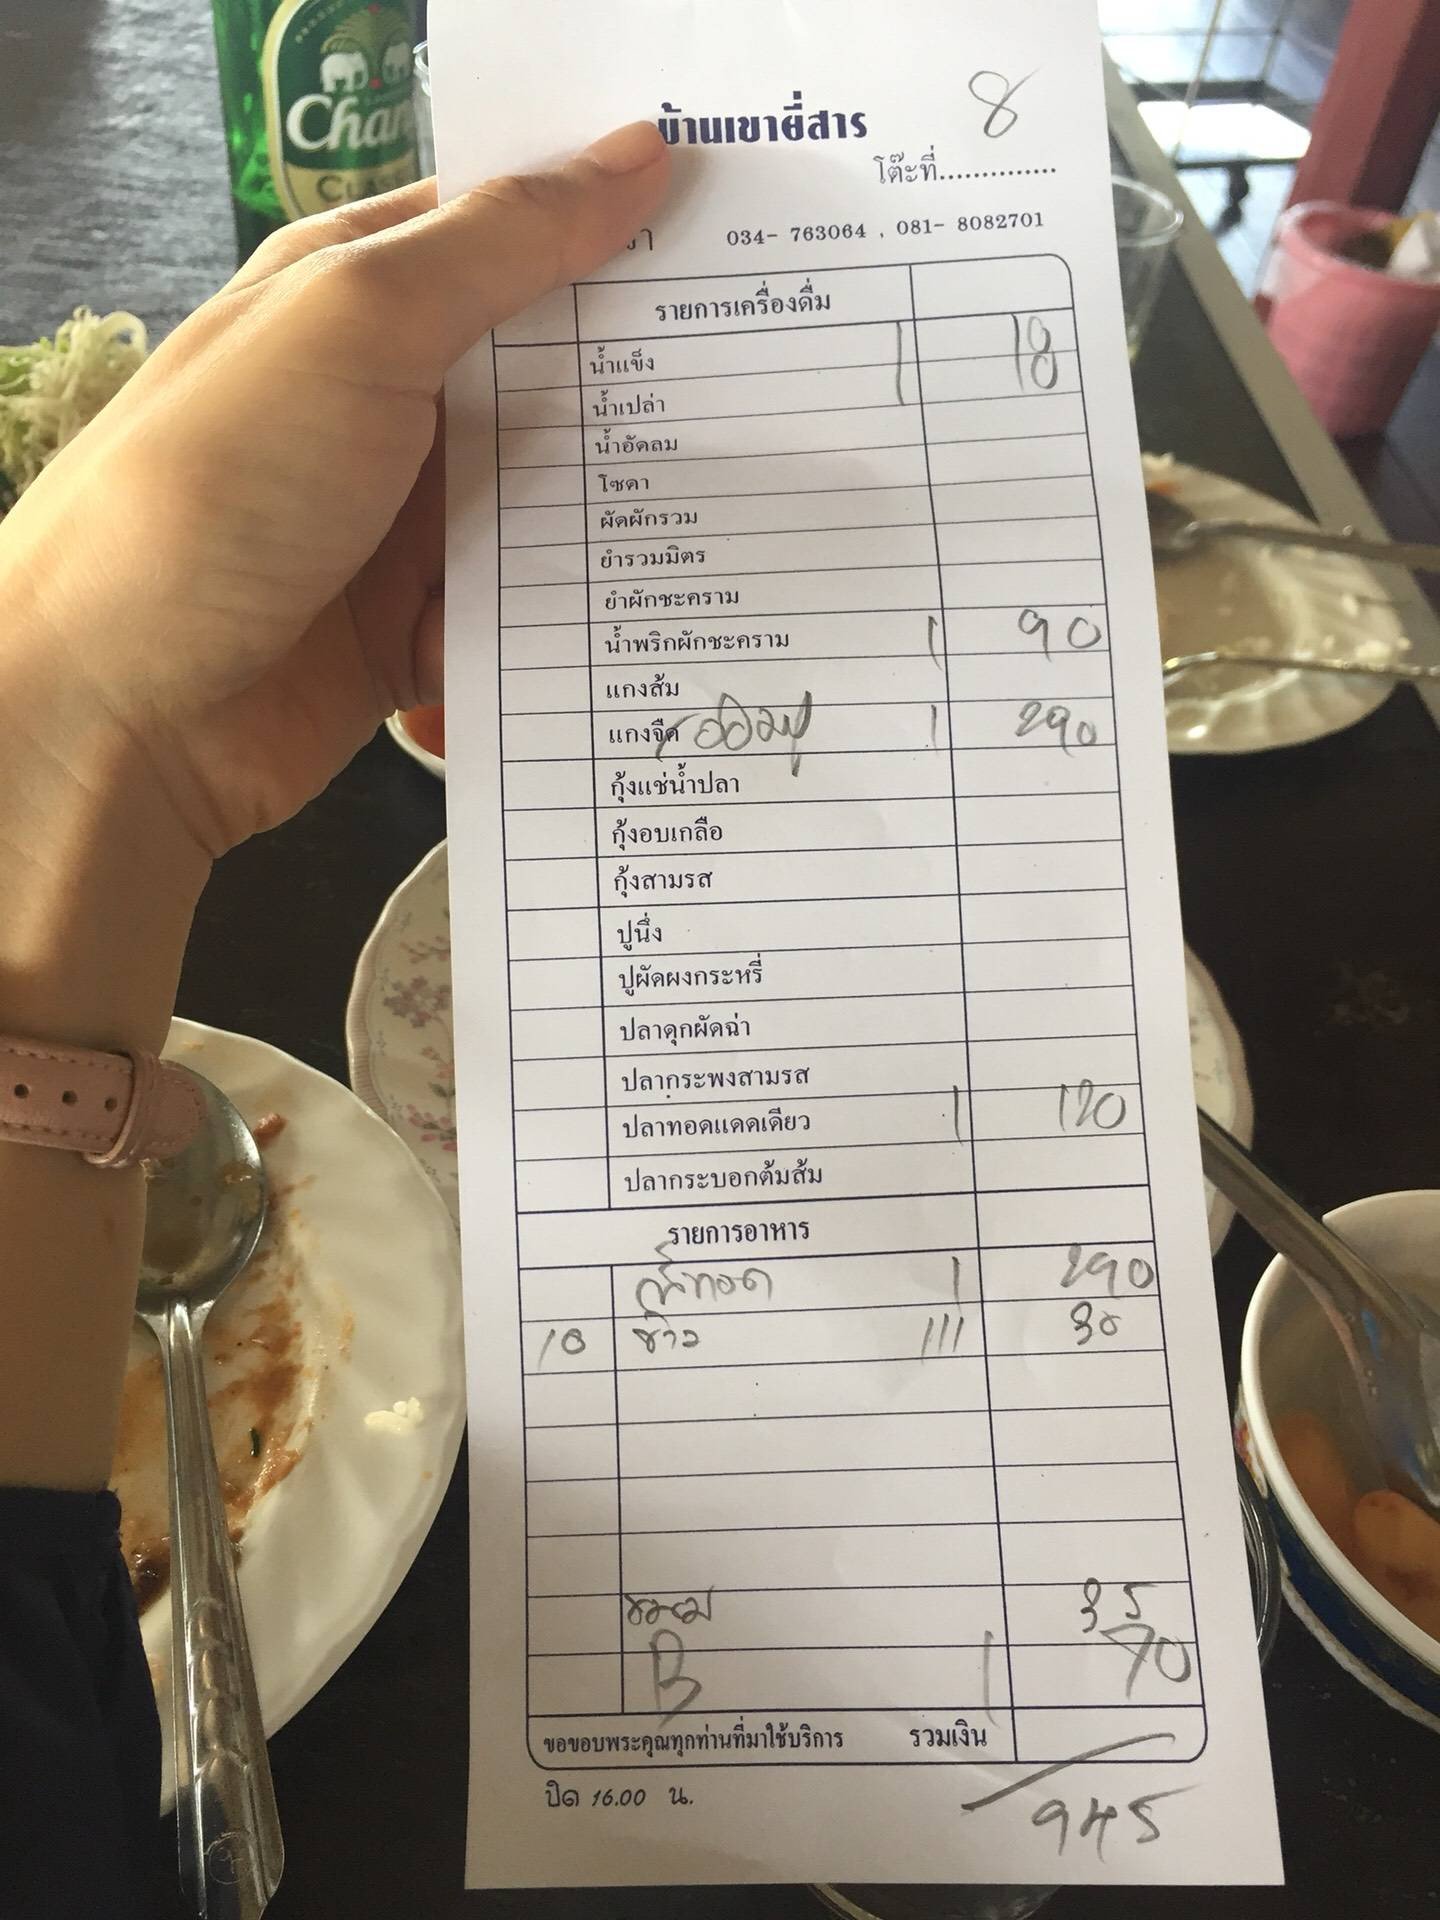 Chan
CLASS
บ้านเขายี่สาร
8
โต๊ะที่..............
034- 763064 , 081- 8082701
รายการเครื่องดื่ม
น้ำแข็ง 1 10
น้ำเปล่า 1 10
น้ำอัดลม
โซดา
ผัดผักรวม
ยำรวมมิตร
ยำผักชะคราม
น้ำพริกผักชะคราม 1 90
แกงส้ม
แกงจืด 1 290
กุ้งแช่น้ำปลา
กุ้งอบเกลือ
กุ้งสามรส
ปูนึ่ง
ปูผัดผงกระหรี่
ปลาดุกผัดฉ่า
ปลากระพงสามรส
ปลาทอดแดดเดียว 1 120
ปลากระบอกต้มส้ม
รายการอาหาร
กุ้งทอด 1 290
10 ข้าว 111 30
ขนม 35
B 1 70
ขอขอบพระคุณทุกท่านที่มาใช้บริการ รวมเงิน
ปิด 16.00 น.
945